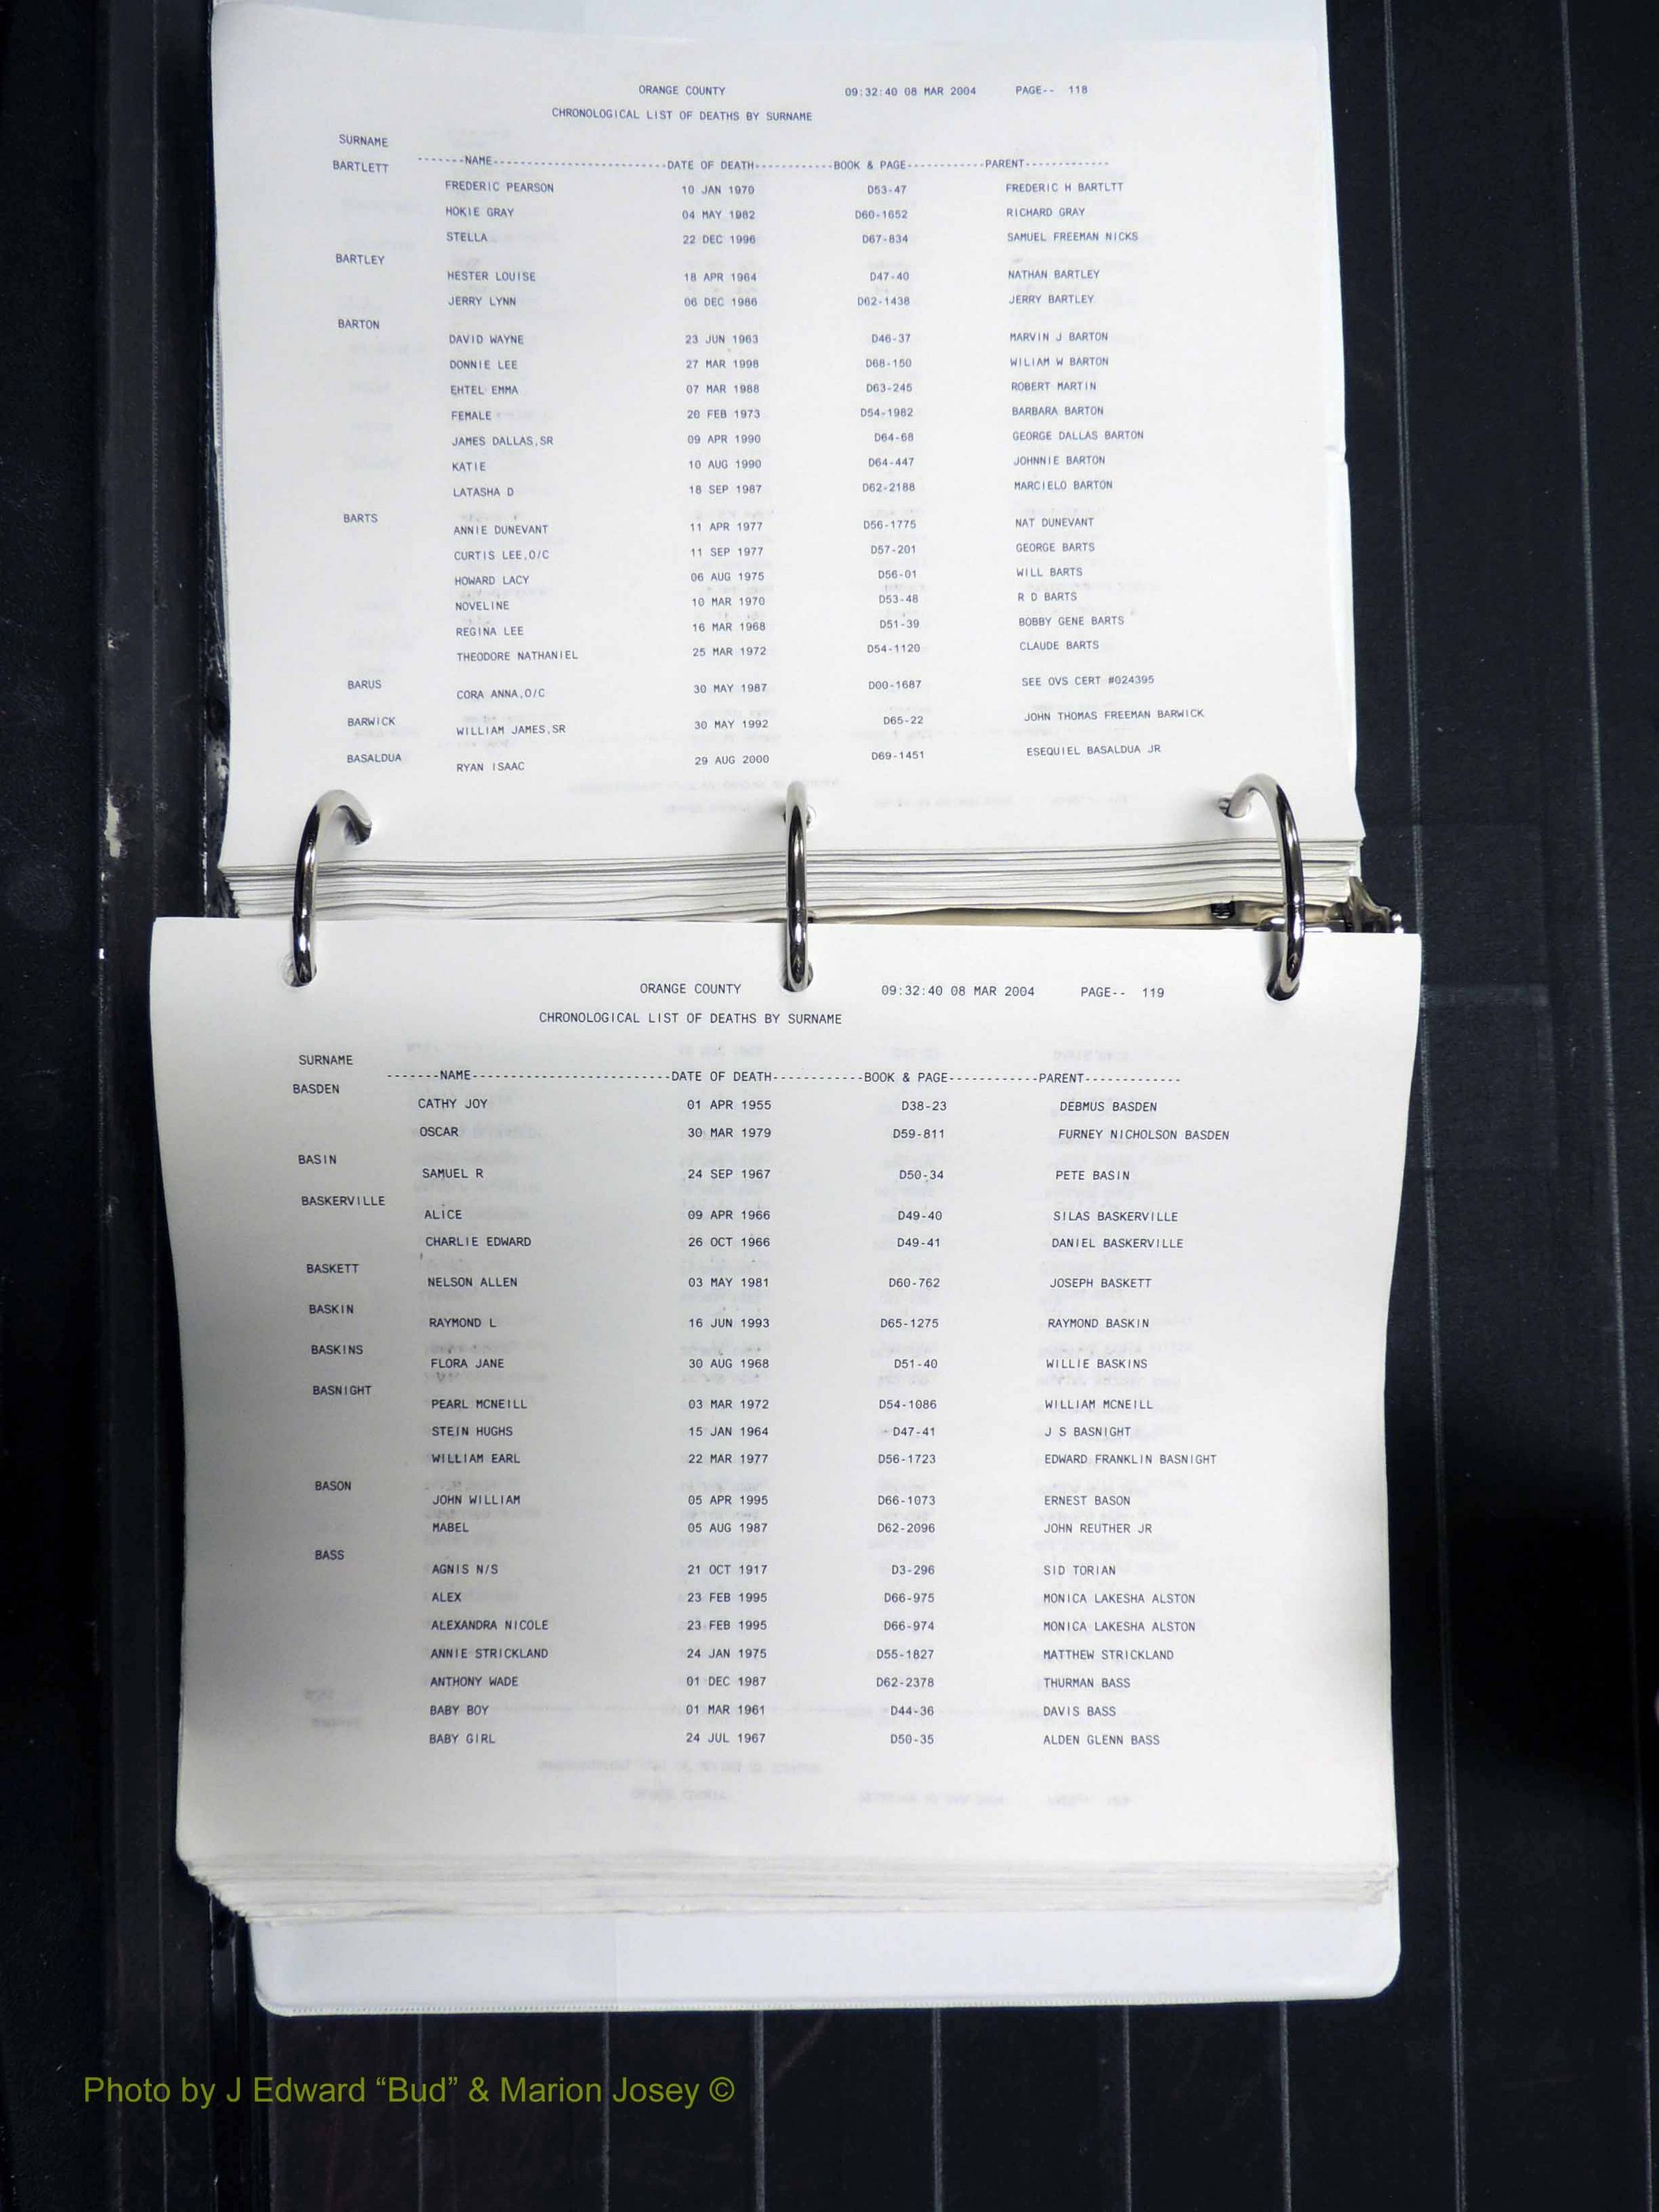 ORANGE COUNTY 09:32:40 08 MAR 2004 PAGE-- 118
CHRONOLOGICAL LIST OF DEATHS BY SURNAME
SURNAME
-------NAME--------------------------DATE OF DEATH-----------BOOK & PAGE-----------PARENT-------------
BARTLETT
FREDERIC PEARSON 10 JAN 1970 D53-47 FREDERIC H BARTLTT
HOKIE GRAY 04 MAY 1982 D60-1652 RICHARD GRAY
STELLA 22 DEC 1996 D67-834 SAMUEL FREEMAN NICKS
BARTLEY
HESTER LOUISE 18 APR 1964 D47-40 NATHAN BARTLEY
JERRY LYNN 06 DEC 1986 D62-1438 JERRY BARTLEY
BARTON
DAVID WAYNE 23 JUN 1963 D46-37 MARVIN J BARTON
DONNIE LEE 27 MAR 1998 D68-150 WILIAM W BARTON
EHTEL EMMA 07 MAR 1988 D63-245 ROBERT MARTIN
FEMALE 20 FEB 1973 D54-1982 BARBARA BARTON
JAMES DALLAS,SR 09 APR 1990 D64-68 GEORGE DALLAS BARTON
KATIE 10 AUG 1990 D64-447 JOHNNIE BARTON
LATASHA D 18 SEP 1987 D62-2188 MARCIELO BARTON
BARTS
ANNIE DUNEVANT 11 APR 1977 D56-1775 NAT DUNEVANT
CURTIS LEE,O/C 11 SEP 1977 D57-201 GEORGE BARTS
HOWARD LACY 06 AUG 1975 D56-01 WILL BARTS
NOVELINE 10 MAR 1970 D53-48 R D BARTS
REGINA LEE 16 MAR 1968 D51-39 BOBBY GENE BARTS
THEODORE NATHANIEL 25 MAR 1972 D54-1120 CLAUDE BARTS
BARUS
CORA ANNA,O/C 30 MAY 1987 D00-1687 SEE OVS CERT #024395
BARWICK
WILLIAM JAMES,SR 30 MAY 1992 D65-22 JOHN THOMAS FREEMAN BARWICK
BASALDUA
RYAN ISAAC 29 AUG 2000 D69-1451 ESEQUIEL BASALDUA JR
ORANGE COUNTY 09:32:40 08 MAR 2004 PAGE-- 119
CHRONOLOGICAL LIST OF DEATHS BY SURNAME
SURNAME
-------NAME--------------------------DATE OF DEATH-----------BOOK & PAGE-----------PARENT-------------
BASDEN
CATHY JOY 01 APR 1955 D38-23 DEBMUS BASDEN
OSCAR 30 MAR 1979 D59-811 FURNEY NICHOLSON BASDEN
BASIN
SAMUEL R 24 SEP 1967 D50-34 PETE BASIN
BASKERVILLE
ALICE 09 APR 1966 D49-40 SILAS BASKERVILLE
CHARLIE EDWARD 26 OCT 1966 D49-41 DANIEL BASKERVILLE
BASKETT
NELSON ALLEN 03 MAY 1981 D60-762 JOSEPH BASKETT
BASKIN
RAYMOND L 16 JUN 1993 D65-1275 RAYMOND BASKIN
BASKINS
FLORA JANE 30 AUG 1968 D51-40 WILLIE BASKINS
BASNIGHT
PEARL MCNEILL 03 MAR 1972 D54-1086 WILLIAM MCNEILL
STEIN HUGHS 15 JAN 1964 D47-41 J S BASNIGHT
WILLIAM EARL 22 MAR 1977 D56-1723 EDWARD FRANKLIN BASNIGHT
BASON
JOHN WILLIAM 05 APR 1995 D66-1073 ERNEST BASON
MABEL 05 AUG 1987 D62-2096 JOHN REUTHER JR
BASS
AGNIS N/S 21 OCT 1917 D3-296 SID TORIAN
ALEX 23 FEB 1995 D66-975 MONICA LAKESHA ALSTON
ALEXANDRA NICOLE 23 FEB 1995 D66-974 MONICA LAKESHA ALSTON
ANNIE STRICKLAND 24 JAN 1975 D55-1827 MATTHEW STRICKLAND
ANTHONY WADE 01 DEC 1987 D62-2378 THURMAN BASS
BABY BOY 01 MAR 1961 D44-36 DAVIS BASS
BABY GIRL 24 JUL 1967 D50-35 ALDEN GLENN BASS
Photo by J Edward “Bud” & Marion Josey ©